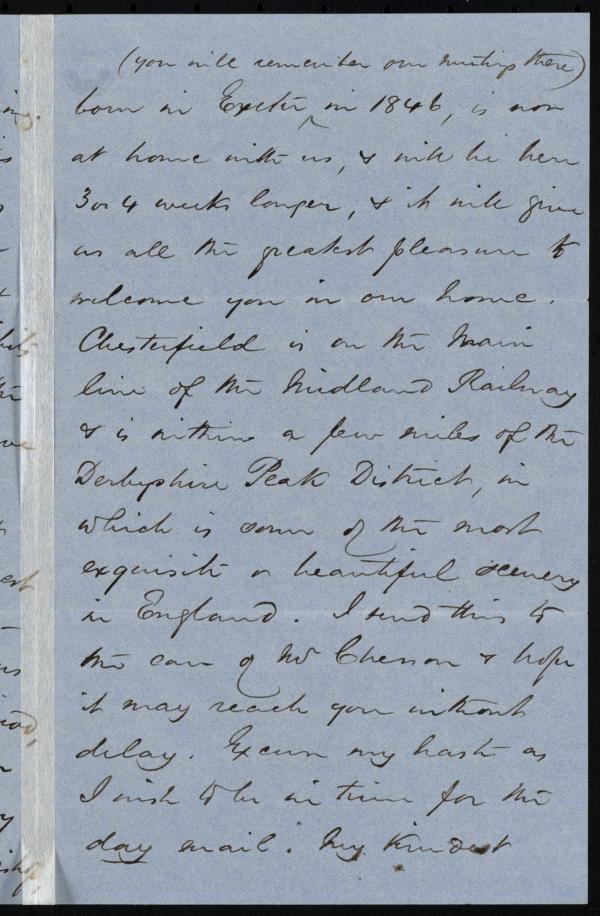 (you will remember our meetings there)
born in Exeter in 1846, is now
at home with us, & will be here
3 or 4 weeks longer, & it will give
us all the greatest pleasure to
welcome you in our home.
Chesterfield is on the Main
line of the Midland Railway
& is within a few miles of the
Derbyshire Peak District, in
which is some of the most
exquisite & beautiful scenery
in England. I send this to
the care of Mr Chesson & hope
it may reach you without
delay. Excuse my haste as
I wish to be in time for the
day mail. My kindest